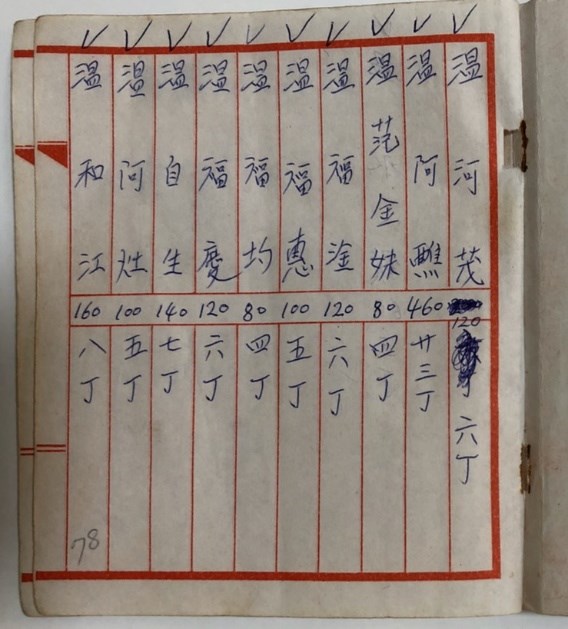 温河茂 120 六丁
温阿 460 廿三丁
温范金妹 80 四丁
温福淦 120 六丁
温福惠 100 五丁
温福均 80 四丁
温福慶 120 六丁
温自生 140 七丁
温阿灶 100 五丁
温和江 160 八丁
78